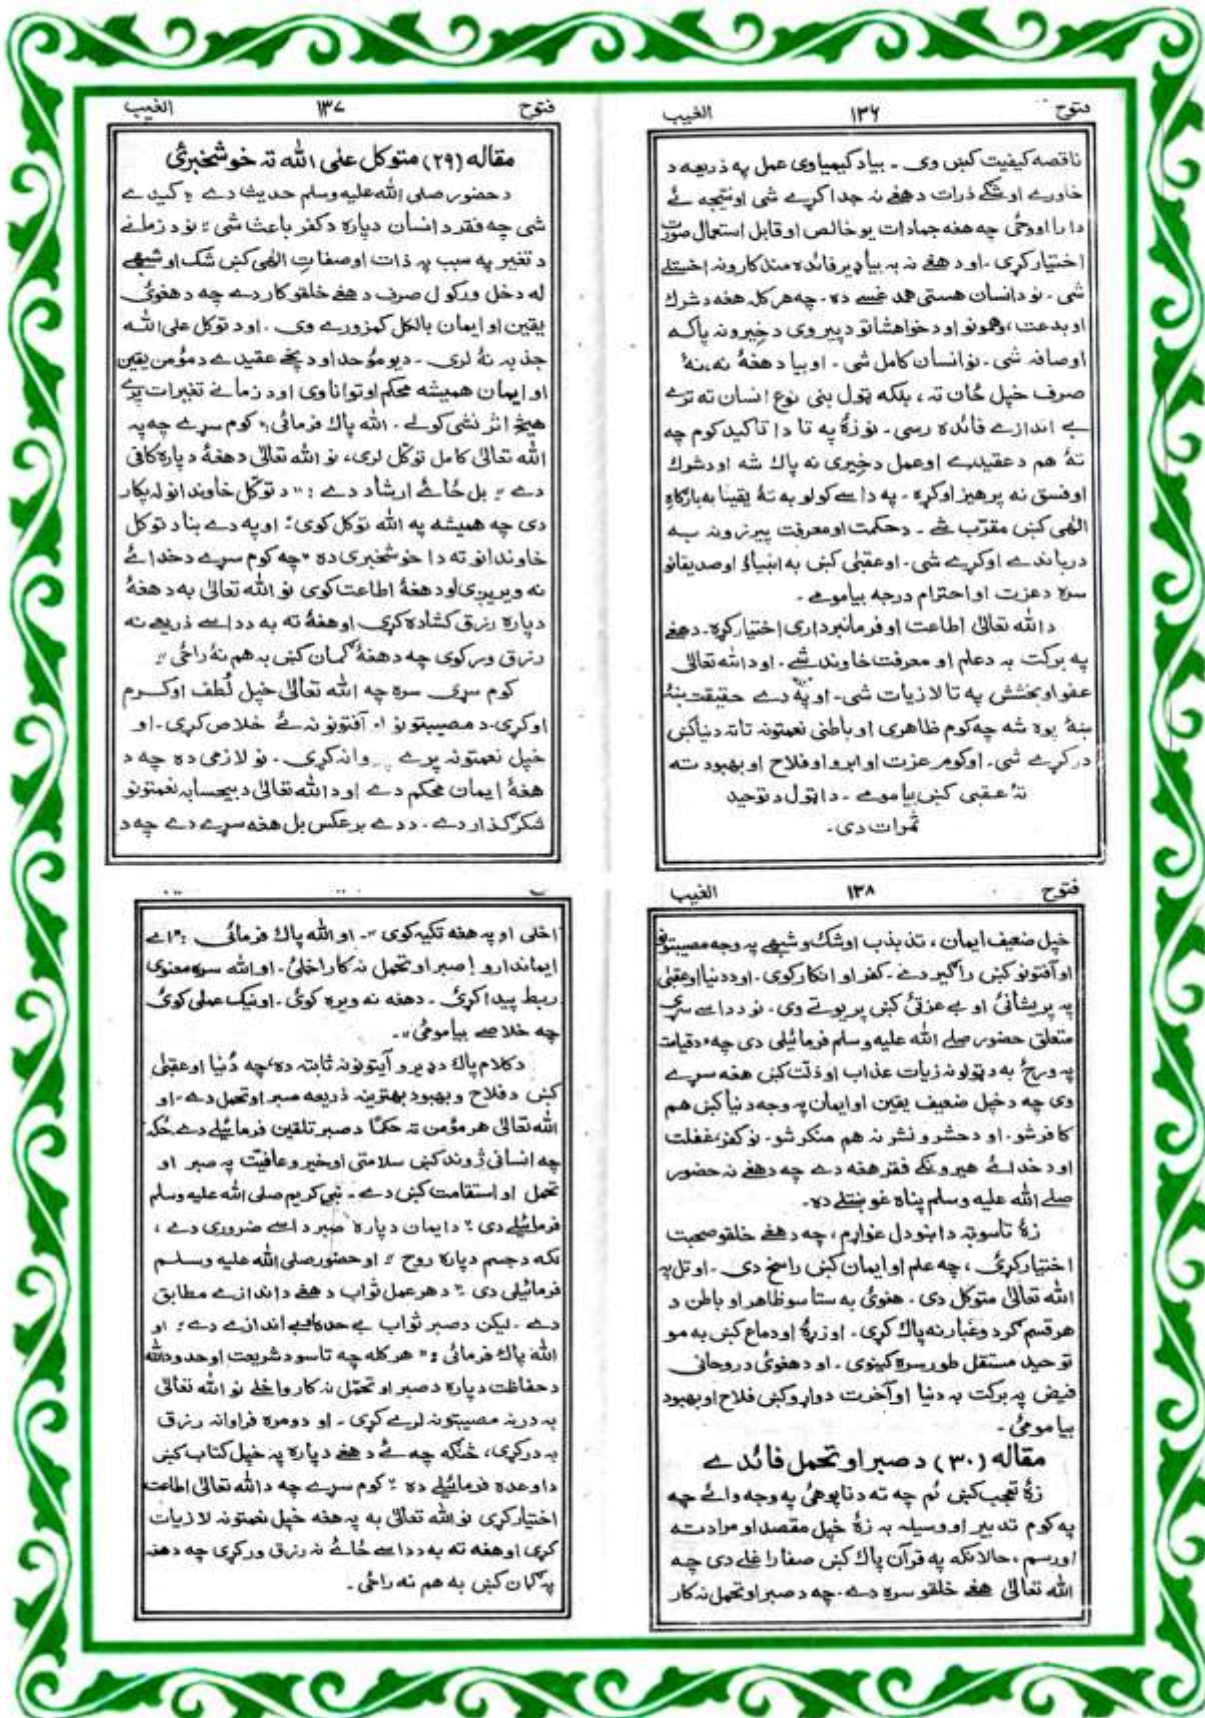 فتوح ١٣٦ الغيب
ناقصه کیفیت کښ وی ۔ بیا د کیمیاوی عمل په ذریعه د
خاورے او شګے ذرات د هغے نه جدا کړے شی او نتیجه ئے
دا را اوځی چه هغه جمادات یو خالص او قابل استعمال صورت
اختیار کړی ۔ او د هغے نه به بیا ډیر فائده مند کارونه اخستلے
شی ۔ نو د انسان هستی هم دغسے ده ۔ چه هر کله هغه د شرک
او بدعت ، وهمونو او د خواهشاتو د پیروی د خیرو نه پاکه
او صافه شی ۔ نو انسان کامل شی ۔ او بیا د هغۀ نه ، نۀ
صرف خپل ځان ته ، بلکه ټول بنی نوع انسان ته ترے
بے اندازے فائده رسی ۔ نو زۀ په تا دا تاکید کوم چه
تۀ هم د عقیدے او عمل د خیری نه پاک شه او د شرک
او فسق نه پرهیز اوکړه ۔ په داسے کولو به تۀ یقینا به بارګاهِ
الٰهی کښ مقرّب شے ۔ د حکمت او معرفت پیرزونه به
درباندے اوکړے شی ۔ او عقبٰی کښ به انبیاؤ او صدیقانو
سره د عزت او احترام درجه بیامومے ۔
د الله تعالیٰ اطاعت او فرمانبرداری اختیار کړه ۔ د هغے
په برکت به د علم او معرفت خاوند شے ۔ او د الله تعالیٰ
عفو او بخشش په تا لا زیات شی ۔ او په دے حقیقت ښۀ
ښۀ پوه شه چه کوم ظاهری او باطنی نعمتونه تا ته دنیا کښ
درکړے شی ۔ او کوم عزت او ابرو او فلاح او بهبود ته
تۀ عقبی کښ بیامومے ۔ دا ټول د توحید
ثمرات دی ۔
فتوح ١٣٧ الغيب
مقاله (٢٩) متوکل علی الله ته خوشخبرئی
د حضور صلی الله علیه وسلم حدیث دے ؛ کیدے
شی چه فقر د انسان دپاره د کفر باعث شی ؛ نو د زمانے
د تغیر په سبب په ذات او صفاتِ الٰهی کښ شک او شبهے
له دخل ورکول صرف د هغے خلقو کار دے چه د هغوئی
یقین او ایمان بالکل کمزورے وی ۔ او د توکل علی الله
جذبه نۀ لری ۔ د یو مؤحد او د پخے عقیدے د مؤمن یقین
او ایمان همیشه محکم او توانا وی او د زمانے تغیرات پرے
هیڅ اثر نشی کولے ۔ الله پاک فرمائی ؛ کوم سړے چه په
الله تعالیٰ کامل توکّل لری، نو الله تعالیٰ د هغۀ دپاره کافی
دے ؛ بل ځائے ارشاد دے : " د توکّل خاوندانو له پکار
دی چه همیشه په الله توکل کوی ؛ او په دے بنا د توکل
خاوندانو ته دا خوشخبری ده " چه کوم سړے د خدائے
نه ویریږی او د هغۀ اطاعت کوی نو الله تعالیٰ به د هغۀ
دپاره رزق کشاده کړی او هغۀ ته به د داسے ذریعے نه
رزق ورکوی چه د هغۀ ګمان کښ به هم نۀ راځی ؛
کوم سړی سره چه الله تعالیٰ خپل لُطف او کرم
اوکړی ۔ د مصیبتونو او آفتونو نه ئے خلاص کړی ۔ او
خپل نعمتونه پرے وانه کړی ۔ نو لازمی ده چه د
هغۀ ایمان محکم دے او د الله تعالیٰ د بیحسابه نعمتونو
شکر ګذار دے ۔ د دے برعکس بل هغه سړے دے چه د
فتوح ١٣٨ الغيب
خپل ضعیف ایمان ، تذبذب او شک و شبهے په وجه مصیبتونو
او آفتونو کښ راګیر دے ۔ کفر او انکار کوی ۔ او د دنیا او عقبٰی
په پریشانئ او بے عزتئ کښ پریوتے وی ۔ نو د داسے سړی
متعلق حضور صلے الله علیه وسلم فرمائیلی دی چه " د قیامت
په ورځ به د ټولو نه زیات عذاب او ذلت کښ هغه سړے
وی چه د خپل ضعیف یقین او ایمان په وجه دنیا کښ هم
کافر شو ۔ او د حشر و نشر نه هم منکر شو ۔ نو کفر، غفلت
او د خدائے هیرونکے فقر هغه دے چه د هغے نه حضور
صلے الله علیه وسلم پناه غوښتلے ده ۔
زۀ تاسو ته دا ښودل غواړم ، چه د هغے خلقو صحبت
اختیار کړئ ، چه علم او ایمان کښ راسخ دی ۔ او تل په
الله تعالیٰ متوکل دی ۔ هغوئی به ستاسو ظاهر او باطن د
هر قسم ګرد و غبار نه پاک کړی ۔ او زړۀ او دماغ کښ به مو
توحید مستقل طور سره کینوی ۔ او د هغوئی د روحانی
فیض په برکت به دنیا او آخرت دواړو کښ فلاح او بهبود
بیامومئ ۔
مقاله (٣٠) د صبر او تحمل فائدے
زۀ تعجب کښ یُم چه ته د ناپوهئ په وجه وائے چه
په کوم تدبیر او وسیله به زۀ خپل مقصد او مراد ته
اورسم ، حالانکه په قرآن پاک کښ صفا راغلے دی چه
الله تعالیٰ هغے خلقو سره دے ۔ چه د صبر او تحمل نه کار
اخلی او په هغه تکیه کوی " ۔ او الله پاک فرمائی : " اے
ایماندارو ! صبر او تحمل نه کار اخلئ ۔ او الله سره معنوی
ربط پیدا کړئ ۔ د هغه نه ویره کوئ ۔ او نیک عملی کوئ
چه خلاصے بیامومئ " ۔
د کلام پاک د ډیرو آیتونو نه ثابته ده ، چه دُنیا او عقبٰی
کښ د فلاح و بهبود بهترینه ذریعه صبر او تحمل دے ۔ او
الله تعالیٰ هر مؤمن ته حکمًا د صبر تلقین فرمائیلے دے ځکه
چه انسانی ژوند کښ سلامتی او خیر و عافیت په صبر او
تحمل او استقامت کښ دے ۔ نبی کریم صلی الله علیه وسلم
فرمائیلے دی ؛ د ایمان دپاره صبر داسے ضروری دے ،
لکه د جسم دپاره روح ؛ او حضور صلی الله علیه وسلم
فرمائیلی دی : " د هر عمل ثواب د هغے د اندازے مطابق
دے ۔ لیکن د صبر ثواب بے حده او بے اندازے دے ؛ او
الله پاک فرمائی : " هر کله چه تاسو د شریعت او حدود الله
د حفاظت دپاره د صبر او تحمّل نه کار واخلے نو الله تعالیٰ
به درنه مصیبتونه لرے کړی ۔ او دومره فراوانه رزق
به درکړی، څنګه چه ئے د هغے دپاره په خپل کتاب کښ
دا وعده فرمائیلے ده ؛ کوم سړے چه د الله تعالیٰ اطاعت
اختیار کړی نو الله تعالیٰ به په هغه خپل نعمتونه لا زیات
کړی او هغه ته به د داسے ځائے نه رزق ورکړی چه د هغه
په ګمان کښ به هم نه راځی ۔